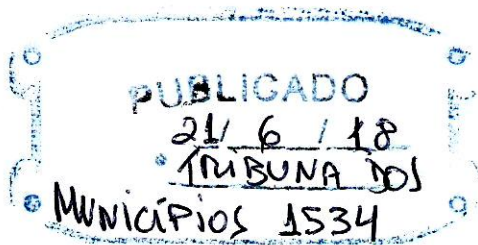 PUBLICADO
21/ 6 / 18
TRIBUNA DOS
MUNICÍPIOS 1534